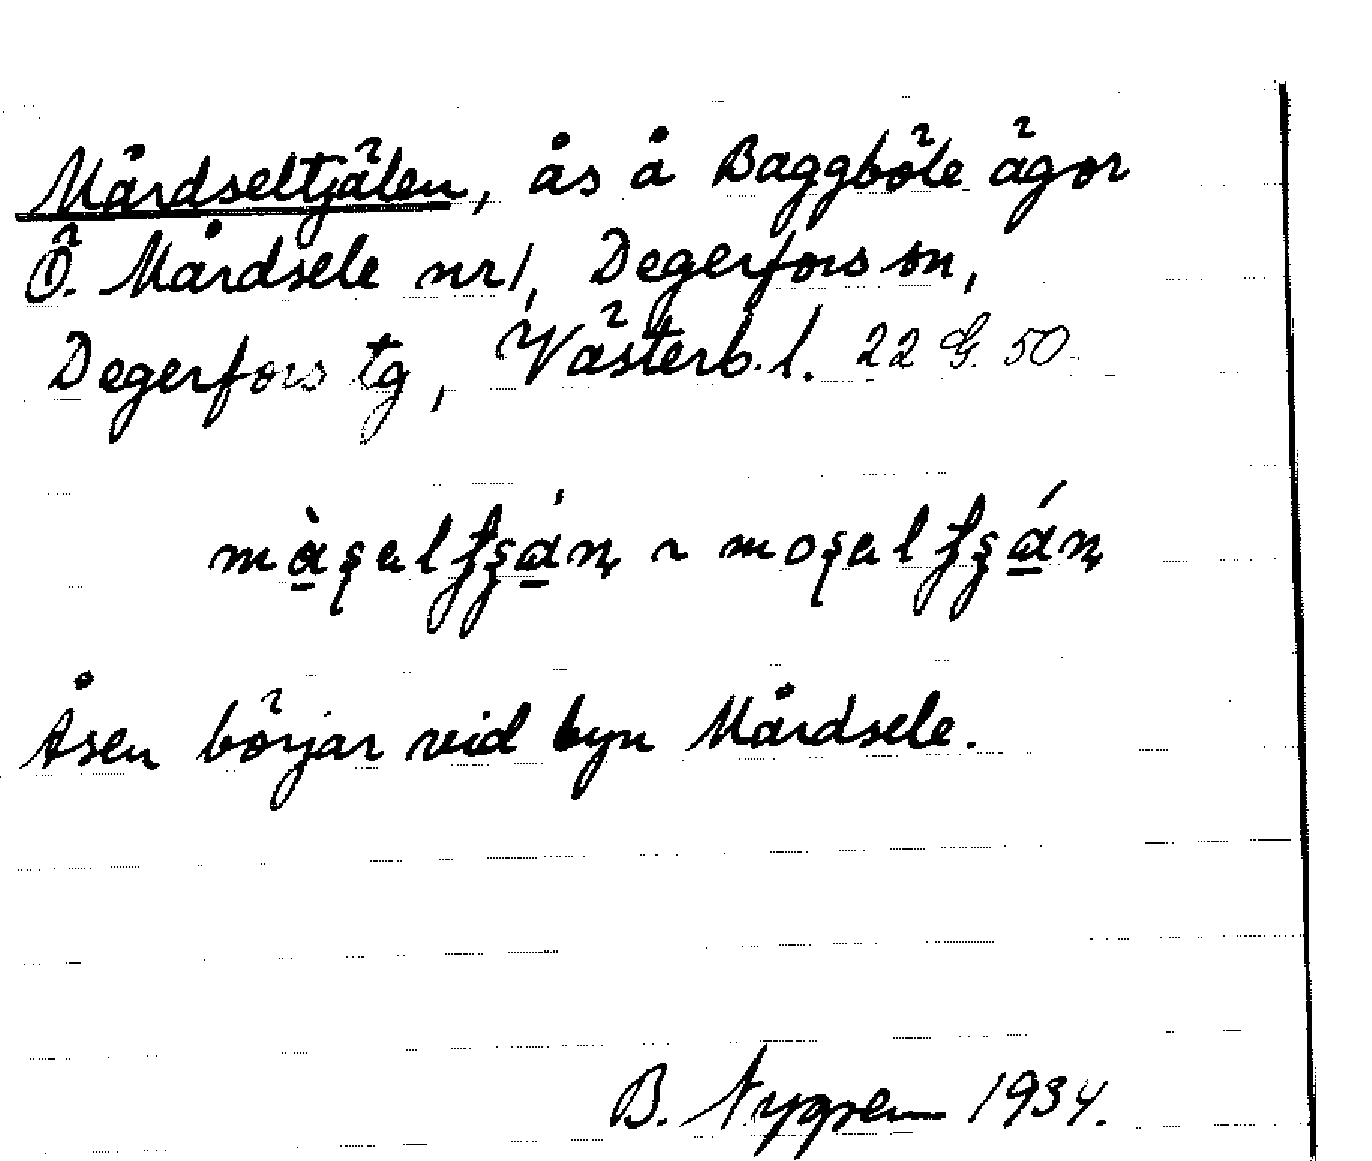 Mårdseltjälen, ås å Baggböle ägor
Ö. Mårdsele nr 1, Degerfors sn,
Degerfors tg, Västerb. l. 22 G. 50
Åsen börjar vid byn Mårdsele.
B. Nygren 1934.